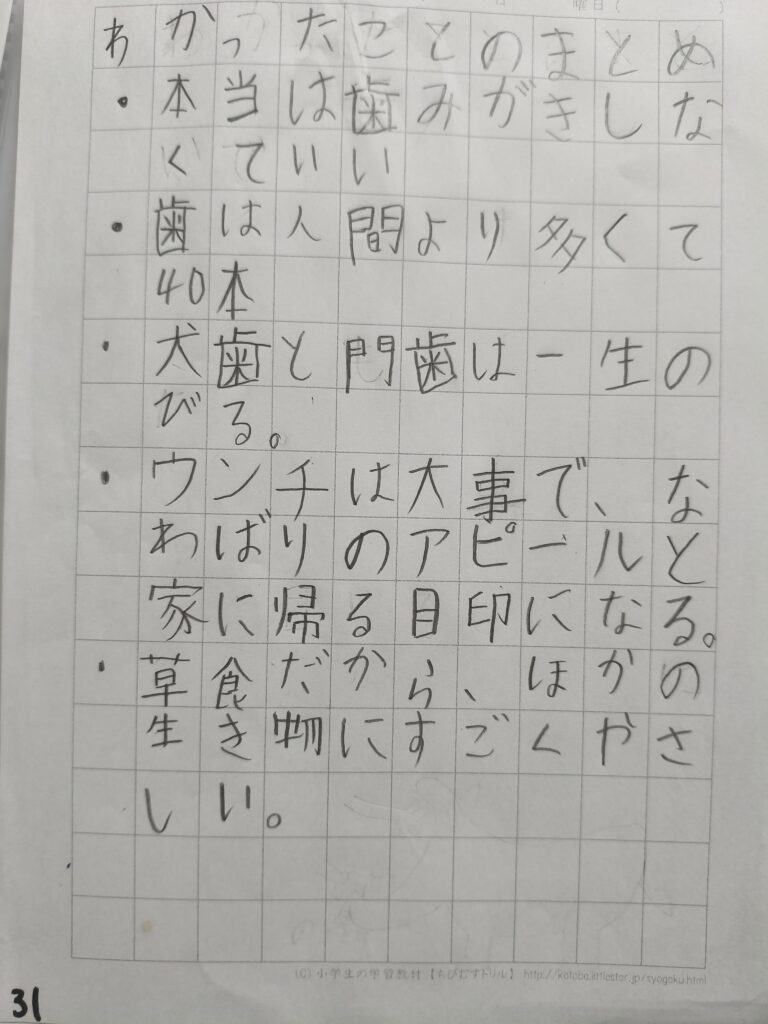 曜日(
わかったことのまとめ
・本当は歯みがきしな
くていい
・歯は人間より多くて
40本
・犬歯と門歯は一生の
びる。
・ウンチは大事で、な
わばりのアピールと
家に帰る目印になる。
・草食だから、ほかの
生き物にすごくやさ
しい。
(C)小学生の学習教材【ちびむすドリル】 http://happylilac.net/syogaku.html
31